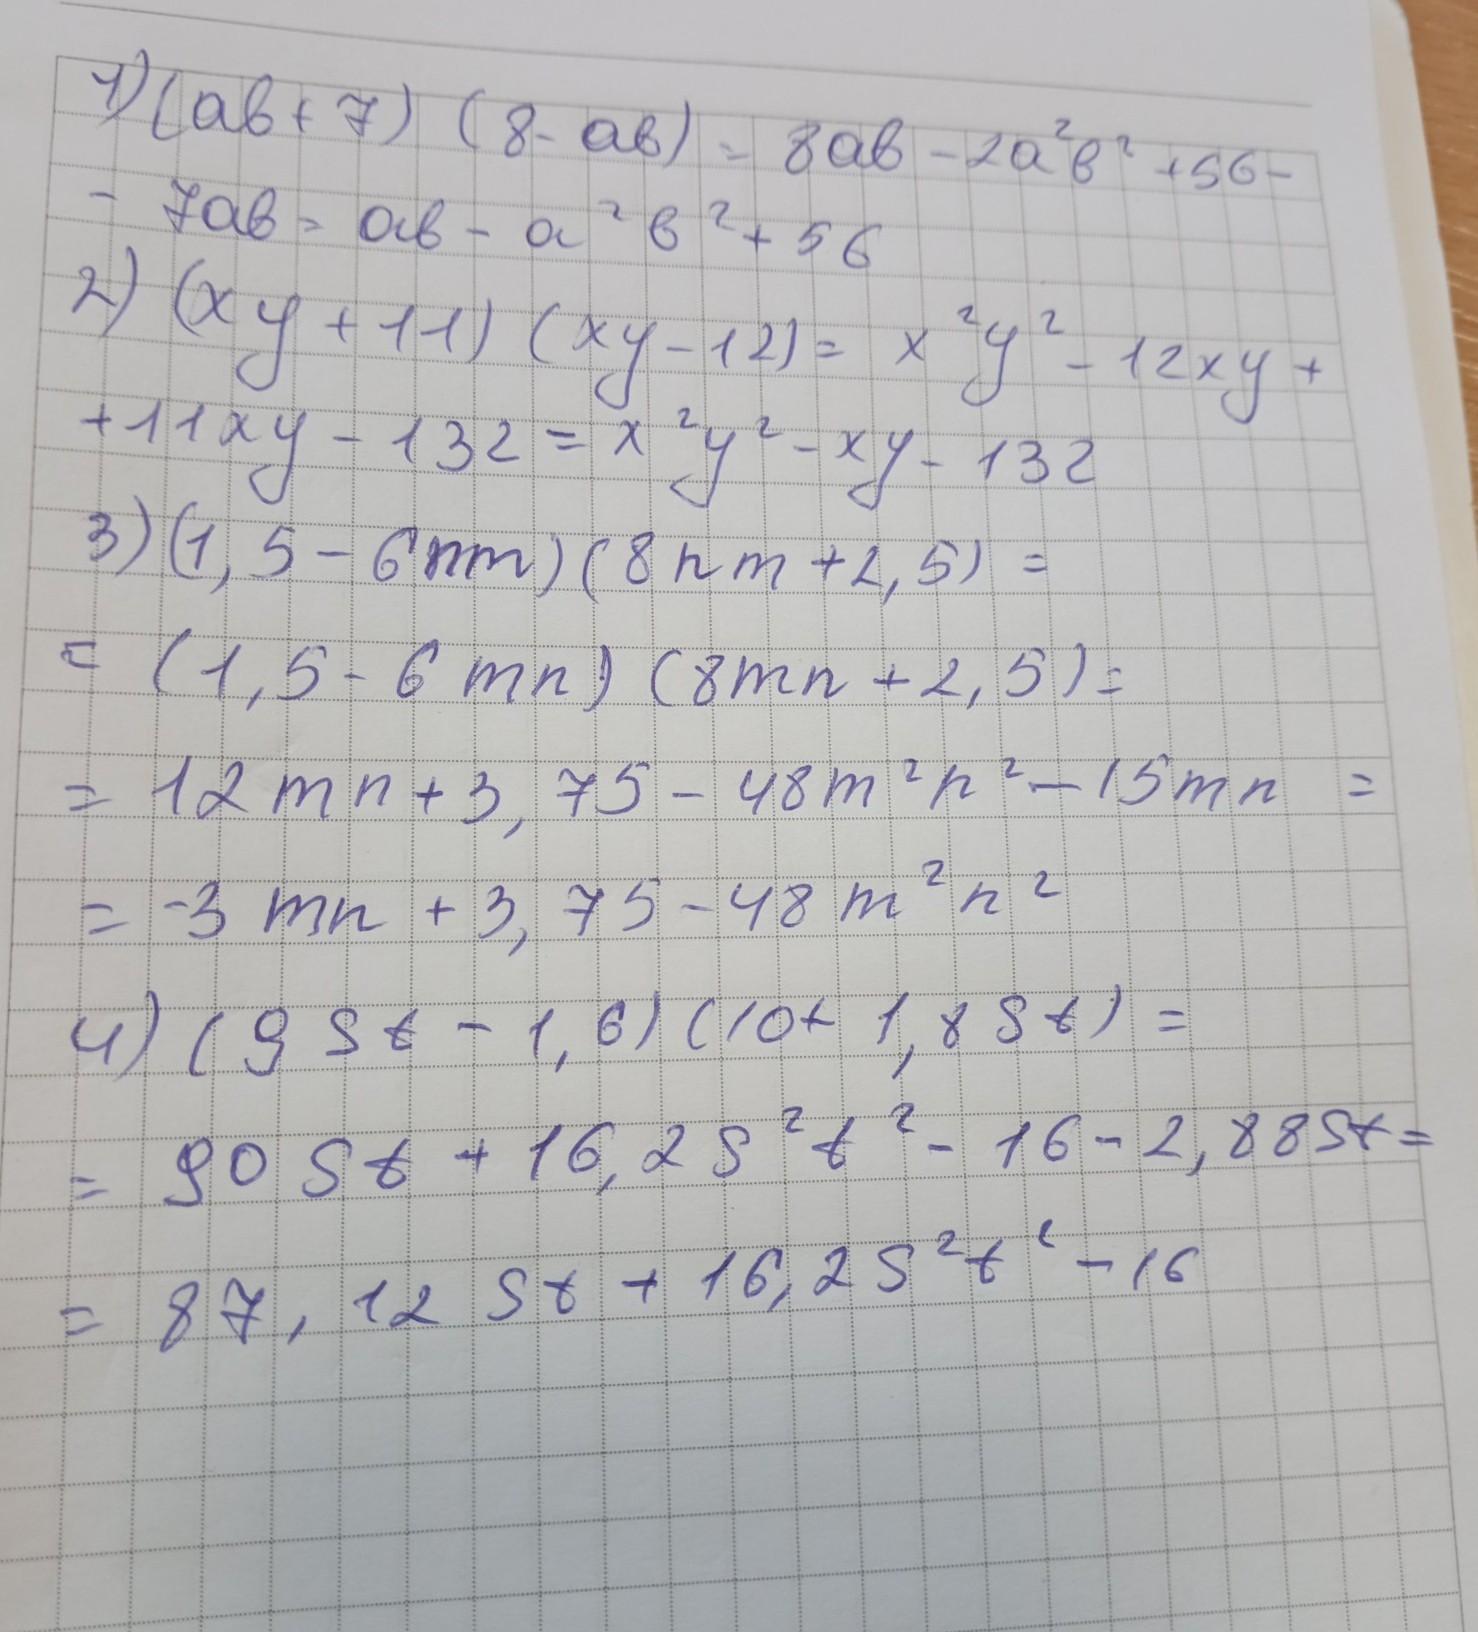 1) (ab + 7) (8 - ab) = 8ab - 2a²b² + 56 -
- 7ab = ab - a²b² + 56
2) (xy + 11) (xy - 12) = x²y² - 12xy +
+ 11xy - 132 = x²y² - xy - 132
3) (1,5 - 6nm) (8nm + 2,5) =
= (1,5 - 6mn) (8mn + 2,5) =
= 12mn + 3,75 - 48m²n² - 15mn =
= -3mn + 3,75 - 48m²n²
4) (9st - 1,6) (10 + 1,8st) =
= 90st + 16,2s²t² - 16 - 2,88st =
= 87,12st + 16,2s²t² - 16